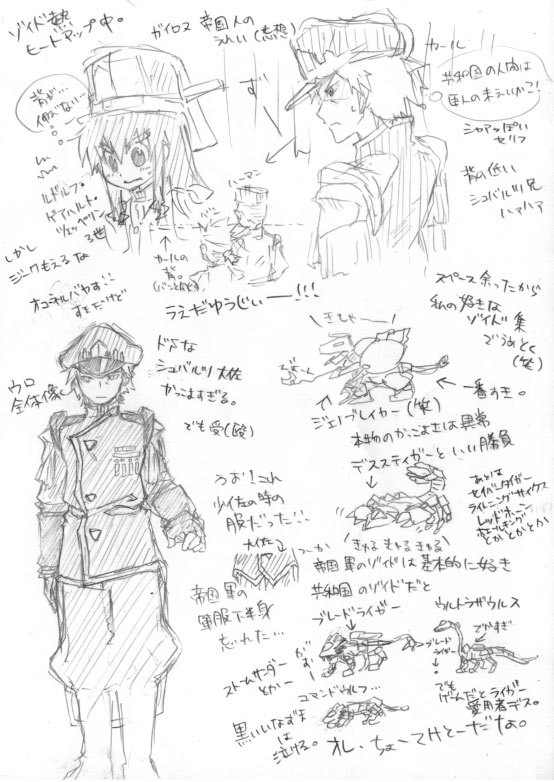 ゾイド熱
ヒートアップ中。
ガイロス帝国人の
うれい(志想)
カール
共和国の人間は
軍人の末えいか?!
シャアっぽい
セリフ
背の低い
シュバルツ兄
ハァハァ
背が…
伸びない…
ずーん
ハーマン
ルドルフ・
ゲアハルト・
ツェッペリン
3世
しかし
ジークもえるな
オコーネルバヤす!!
すきだけど
カールの
背。
うえだゆうじぃー!!!
スペース余ったから
私の好きな
ゾイド集
でうめとく
(笑)
ウロ
全体像
ドSな
シュバルツ大佐
かっこよすぎる。
でも受(殴)
\きしゃー/
ジェノブレイカー(笑)
一番すき。
本物のかっこよさは異常
デススティンガーといい勝負
うお!これ
少佐の時の
服だった!!
大佐
つーか
あとは
セイバータイガー
ライトニングサイクス
レッドホーン
とかとかとか
きゅる きゅる きゅる
帝国軍のゾイドは基本的に好き
共和国のゾイドだと
ブレードライガー
ウルトラザウルス
でかすぎ
ブレード
ライガー
帝国軍の
軍服下半身
忘れた…
ストームソーダー
とかー
がおー
コマンドウルフ…
黒いいなずま
は
泣ける。
でも
げーんだとライガー
愛用者デス。
オレ、ちょーてきとーだな。